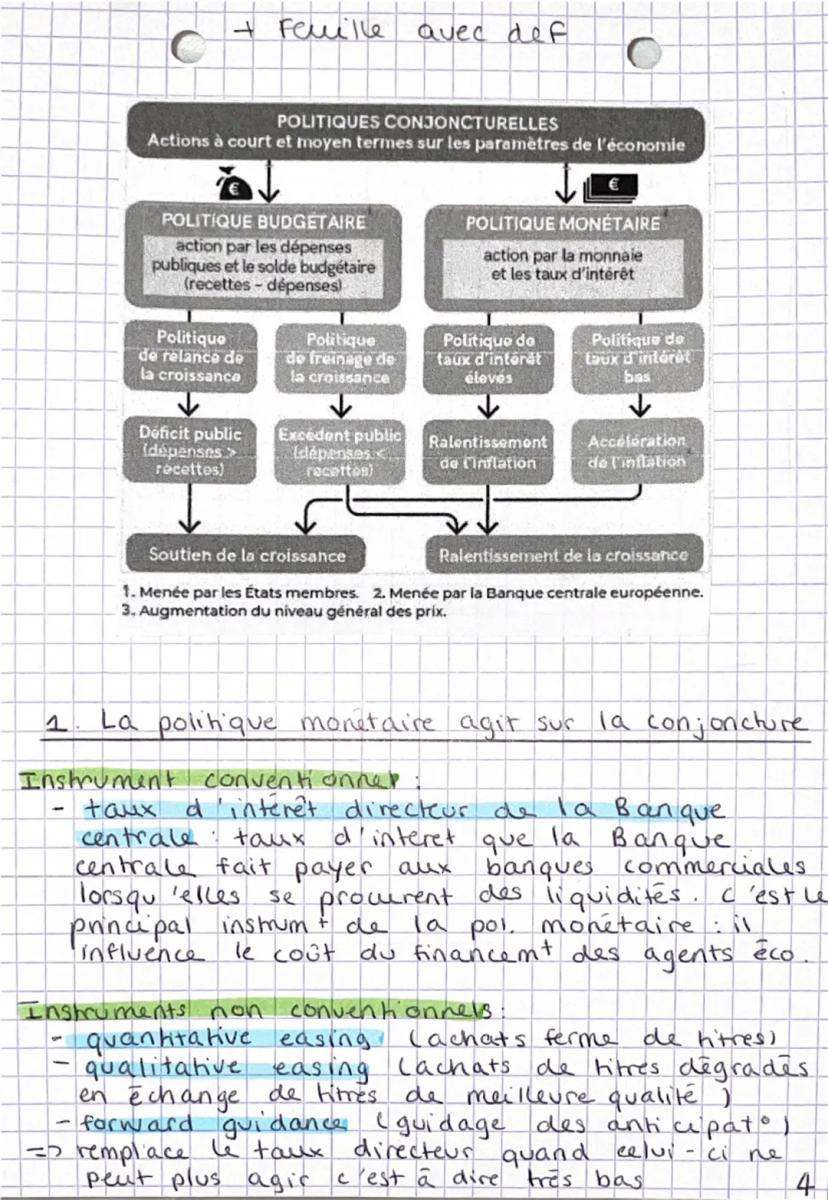 + Feuille avec def
POLITIQUES CONJONCTURELLES
Actions à court et moyen termes sur les paramètres de l'économie
€
€
POLITIQUE BUDGÉTAIRE¹
action par les dépenses
publiques et le solde budgétaire
(recettes – dépenses)
POLITIQUE MONÉTAIRE²
action par la monnaie
et les taux d'intérêt
Politique
de relance de
la croissance
Politique
de freinage de
la croissance
Politique de
taux d'intérêt
élevés
Politique de
taux d'intérêt
bas
Déficit public
(dépenses >
recettes)
Excédent public
(dépenses <
recettes)
Ralentissement
de l'inflation
Accélération
de l'inflation³
Soutien de la croissance
Ralentissement de la croissance
1. Menée par les États membres. 2. Menée par la Banque centrale européenne.
3. Augmentation du niveau général des prix.
1. La politique monétaire agit sur la conjoncture
Instrument conventionnel :
- taux d'intérêt directeur de la Banque
centrale : taux d'interet que la Banque
centrale fait payer aux banques commerciales
lorsqu'elles se procurent des liquidités. c'est le
principal instrumt de la pol. monétaire : il
influence le coût du financemt des agents éco.
Instruments non conventionnels :
- quantitative easing (achats ferme de titres)
- qualitative easing (achats de titres dégradés
en échange de titres de meilleure qualité)
- forward guidance (guidage des anticipat°)
=> remplace le taux directeur quand celui-ci ne
peut plus agir c'est à dire très bas
4